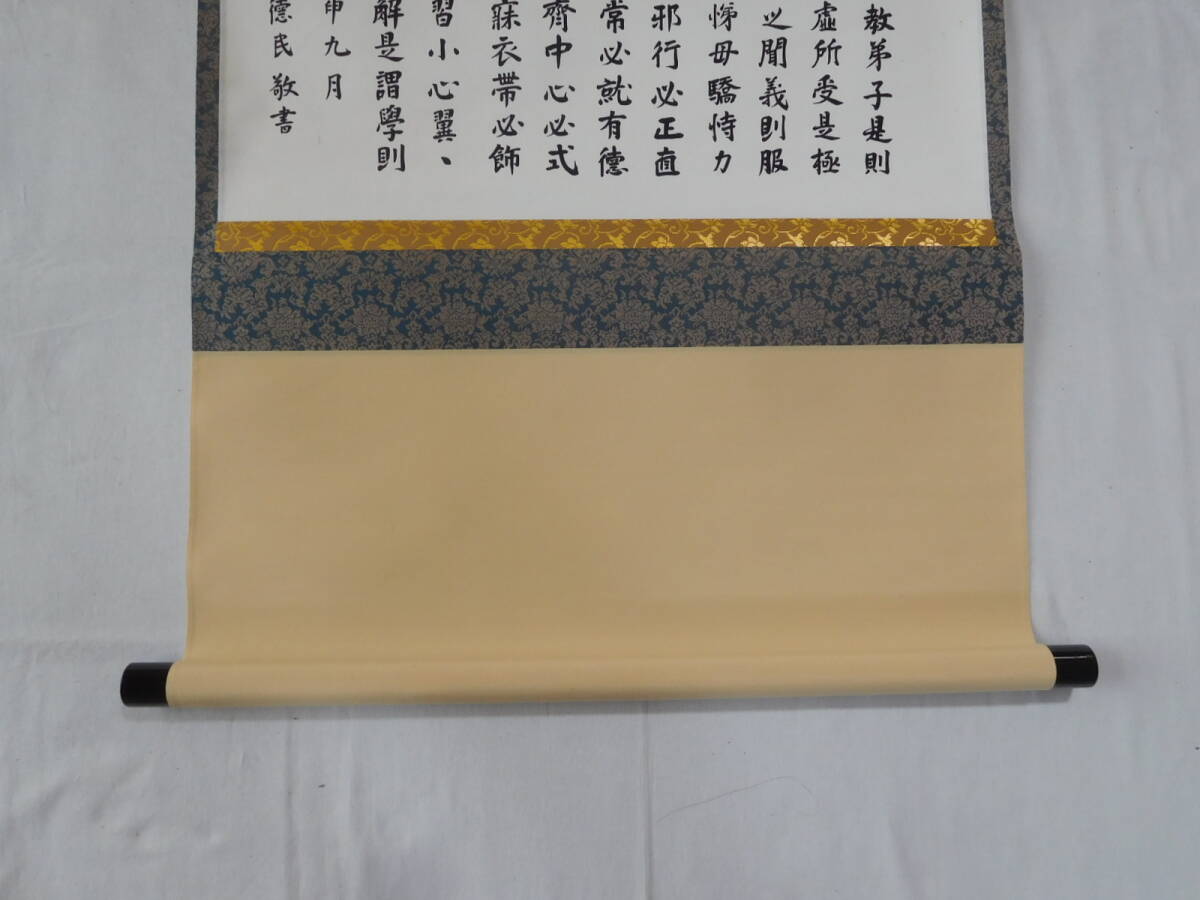 教弟子是則
虛所受是極
之聞義則服
悌毋驕恃力
邪行必正直
常必就有德
齊中心必式
寐衣帶必飾
習小心翼、
解是謂學則
申九月
德民敬書